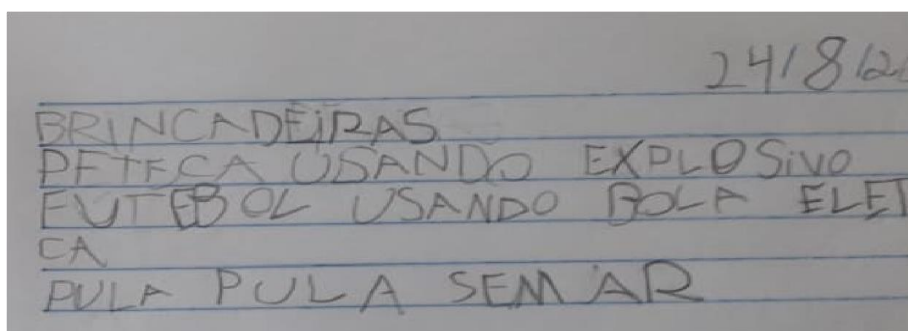 24/8/2
BRINCADEiRAS
PETECA USANDO EXPLOSiVO
FUTEBOL USANDO BOLA ELET
CA
PULA PULA SEM AR